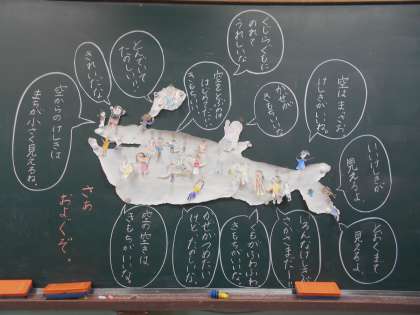 くじらぐもに
のれて
うれしいな
とんでいて
たのしい!!
きれいだな
空からのけしきは
まちが小さく見えるね。
さぁ
およぐぞ。
空をとぶのは
はじめてだい
きもちいいな
かぜが
きもちいいな
空はまっさお
けしきがいいね。
いいけしきが
見えるよ
とおくまで
見えるよ。
いろんなけしきが
くもがふわふわ
きもちがいいな
かぜがつめたい
けど、たのしいな
空の空きは
きもちがいいな。